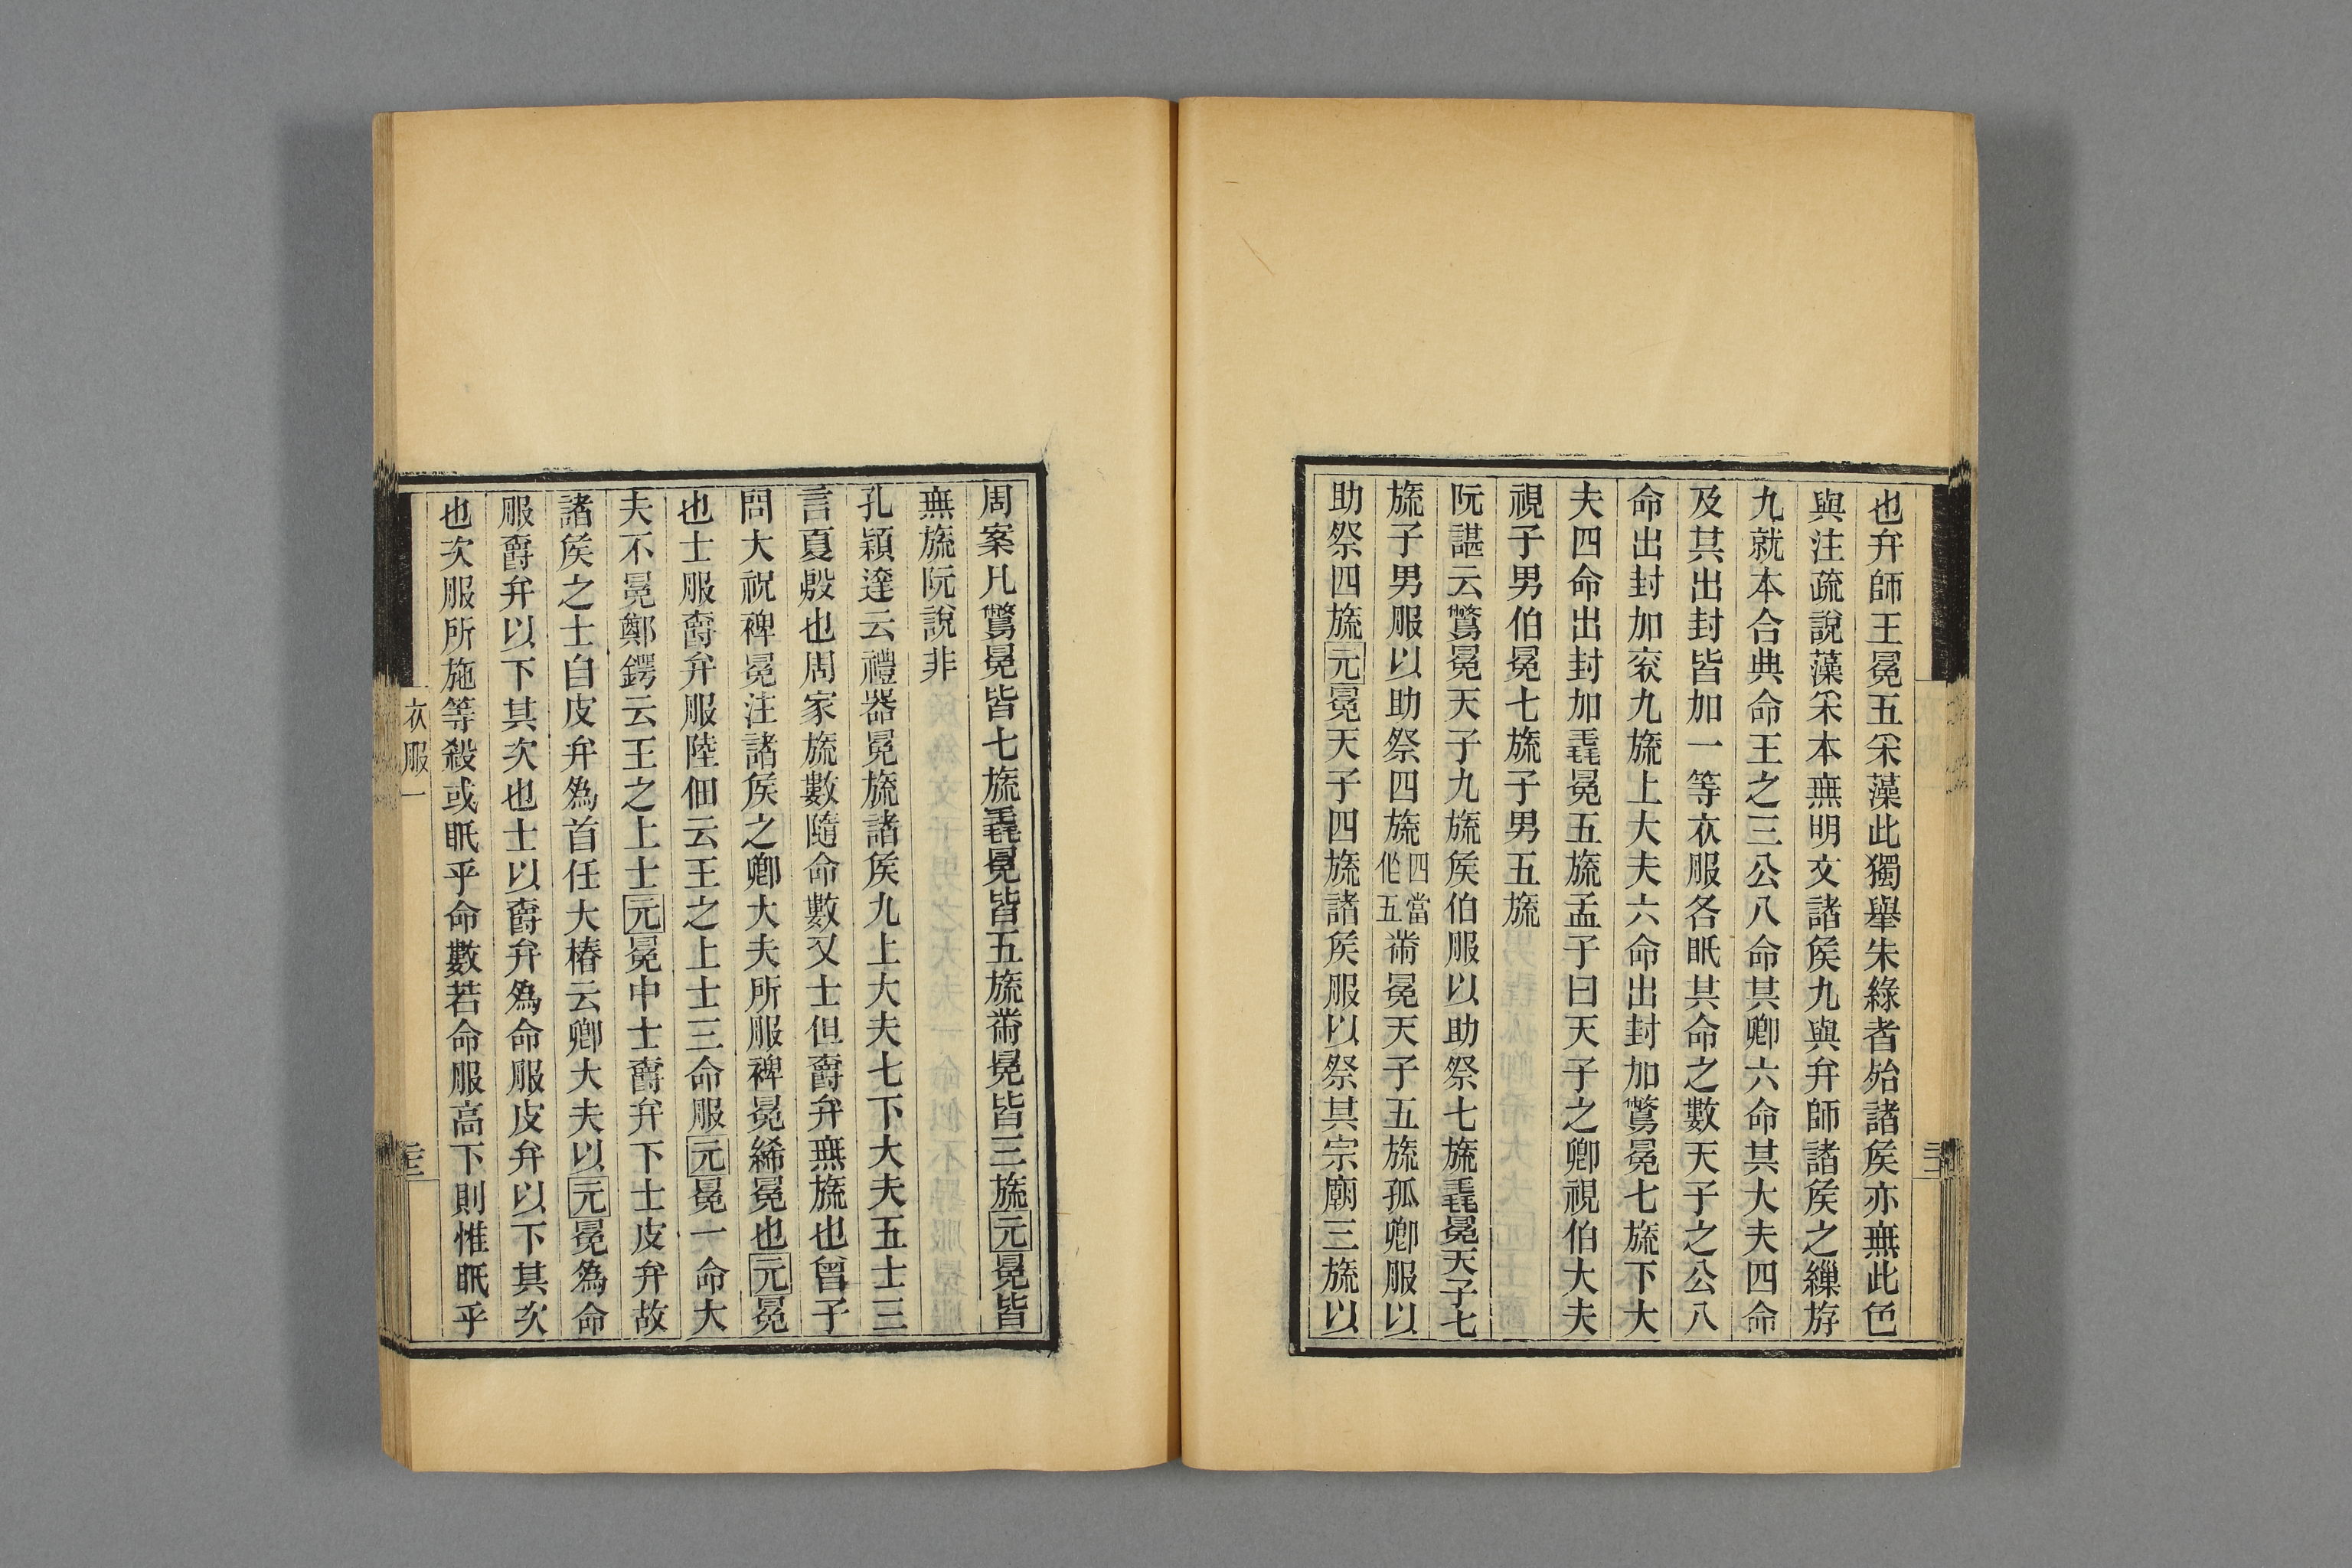 也弁師王冕五采藻此獨舉朱綠者殆諸矦亦無此色
與注疏說藻采本無明文諸矦九與弁師諸矦之繅斿
九就本合典命王之三公八命其卿六命其大夫四命
及其出封皆加一等衣服各眂其命之數天子之公八
命出封加衮九旒上大夫六命出封加鷩冕七旒下大
夫四命出封加毳冕五旒孟子曰天子之卿視伯大夫
視子男伯冕七旒子男五旒
阮諶云鷩冕天子九旒矦伯服以助祭七旒毳冕天子七
旒子男服以助祭四旒四當作五黹冕天子五旒孤卿服以
助祭四旒元冕天子四旒諸矦服以祭其宗廟三旒以
周案凡鷩冕皆七旒毳冕皆五旒黹冕皆三旒元冕皆
無旒阮說非
孔穎達云禮器冕旒諸矦九上大夫七下大夫五士三
言夏殷也周家旒數隨命數又士但爵弁無旒也曾子
問大祝裨冕注諸矦之卿大夫所服裨冕絺冕也元冕
也士服爵弁服陸佃云王之上士三命服元冕一命大
夫不冕鄭鍔云王之上士元冕中士爵弁下士皮弁故
諸矦之士自皮弁為首任大椿云卿大夫以元冕為命
服爵弁以下其次也士以爵弁為命服皮弁以下其次
也次服所施等殺或眂乎命數若命服高下則惟眂乎
衣服一